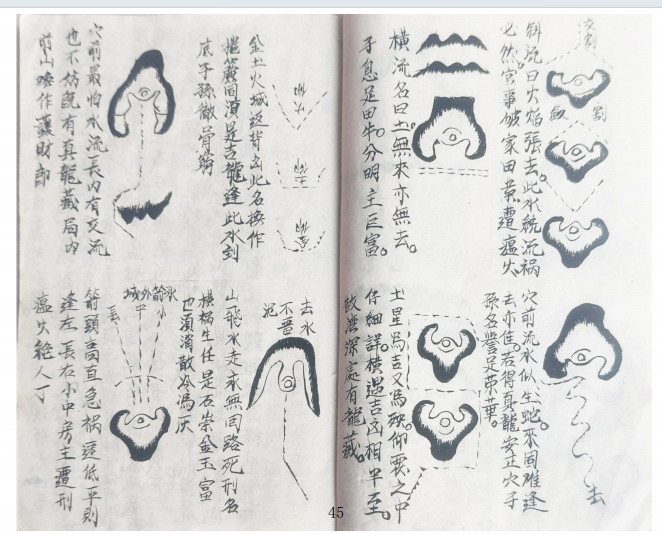 交劍
劍
斜流曰火焰張去。此水統流禍
必然。官事破家田業遭瘟火
橫流名曰土。無來亦無去。
子息足田牛。分明主巨富。
穴前流水似生蛇。來固難逢
去亦佳。若得真龍安正穴。子
孫名譽是榮華。
去
土星為吉又為殃。仰雲之中
仔細詳。橫過吉凶相半至。
散漫深處有龍藏。
金土火城返背凶此名換作
捲簾同須是吉龍逢此水到
底子孫徹骨窮
穴前最怕水流長內有交流
也不妨既有真龍藏局內
前山喚作蠹財郎
去水
不畱
泥
山飛水走永無回路死刑名
橫禍生任是石崇金玉富
也須消散冷湯灰
城外箭水
中
小
長
箭頭高直急禍遲低平則
逢左長右小中房主遭刑
瘟火絕人丁
45